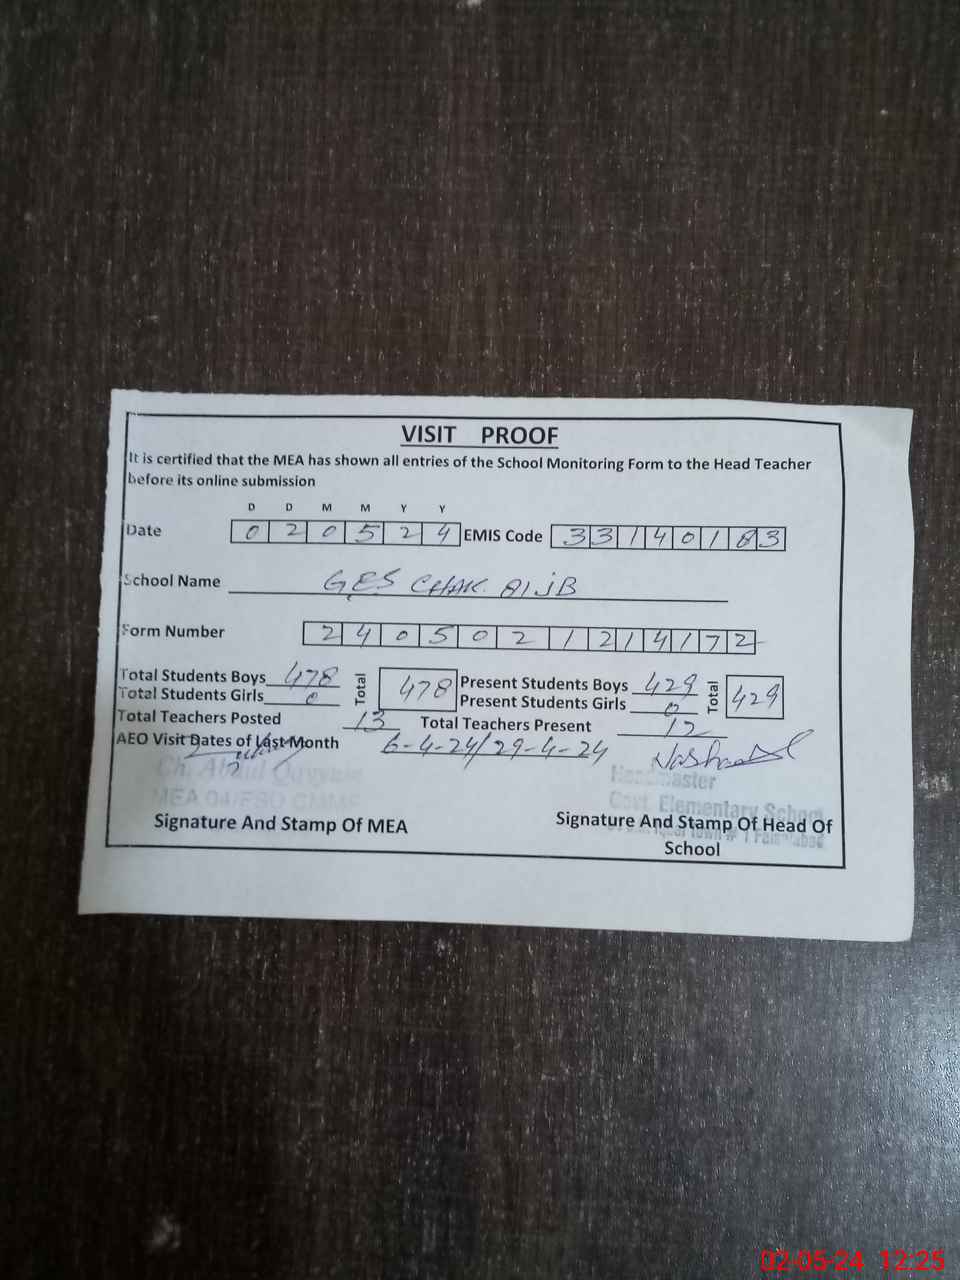 VISIT PROOF
It is certified that the MEA has shown all entries of the School Monitoring Form to the Head Teacher
before its online submission
D D M M Y Y
Date 0 2 0 5 2 4 EMIS Code 3 3 1 4 0 1 8 3
School Name GES CHAK 81 JB
Form Number 2 4 0 5 0 2 1 2 1 4 1 7 2
Total Students Boys 478 Total 478 Present Students Boys 429 Total 429
Total Students Girls 0 Present Students Girls 0
Total Teachers Posted 13 Total Teachers Present 12
AEO Visit Dates of Last Month 6-4-24/29-4-24
Ch. Abdul Qayyum Headmaster
MEA 04/FSD Govt. Elementary School
Signature And Stamp Of MEA Signature And Stamp Of Head Of
School
02-05-24 12:25